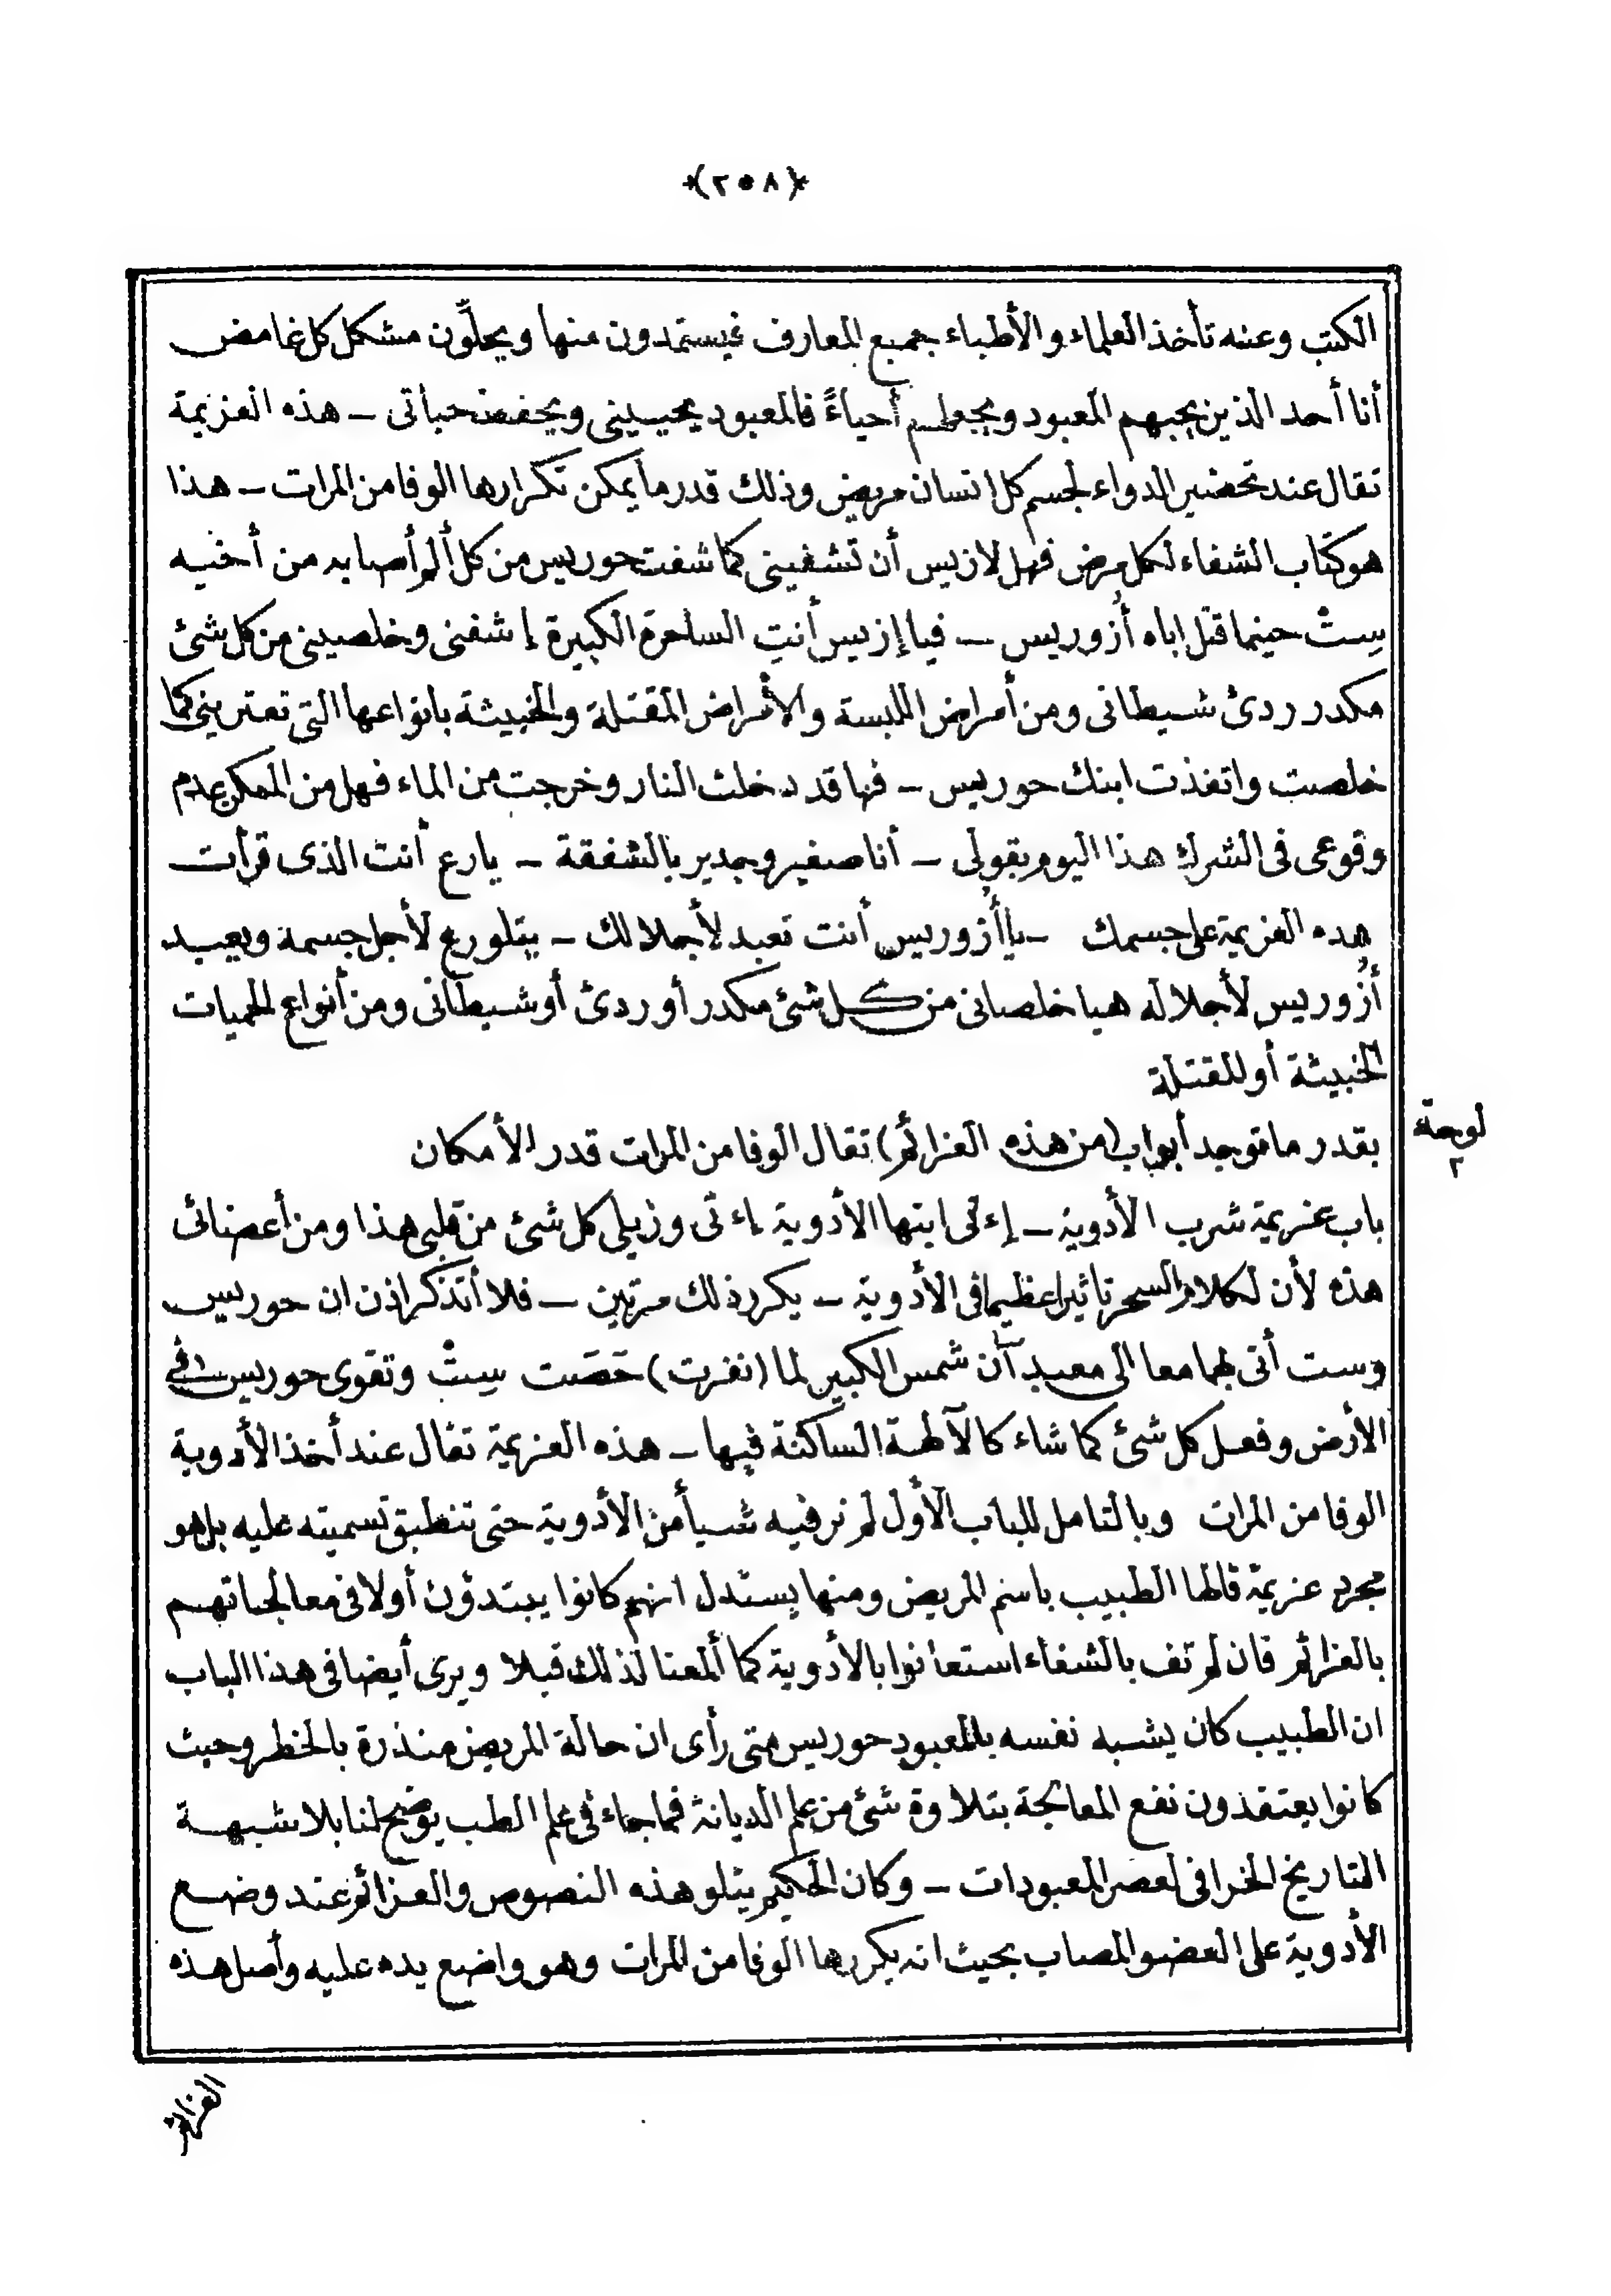 *(٢٥٨)*
الكتب وعنه تأخذ العلماء والأطباء جميع المعارف فيستمدون منها ويحلّون مشكل كل غامض
أنا أحد الذين يحبهم المعبود ويجعلهم أحياءً فالمعبود يحييني ويحفظ حياتى – هذه العزيمة
تقال عند تحضير الدواء لجسم كل انسان مريض وذلك قدر ما يمكن تكرارها الوفا من المرات – هذا
هو كتاب الشفاء لكل مرض فهل لازيس أن تشفينى كما شفت حوريس من كل ألم أصابه من أخيه
سِتْ حينما قتل اباه أُزوريس – فيا إزيس أنتِ الساحرة الكبيرة إشفنى وخلصينى من كل شئ
مكدر ردئ شيطانى ومن أمراض اللبسة والأمراض المقتلة والخبيثة بانواعها التى تعترينى كما
خلصت وانقذت ابنك حوريس – فها قد دخلت النار وخرجت من الماء فهل من الممكن عدم
وقوعى فى الشرك هذا اليوم بقولى – أنا صغير وجدير بالشفقة – يارع أنت الذى قرأت
هذه العزيمة على جسمك – ياأُزوريس أنت تعبد لأجلالك – يتلو رع لأجل جسمه ويعبد
أُزوريس لأجلاله هيا خلصانى من كل شئ مكدر أو ردئ أو شيطانى ومن أنواع الحميات
الخبيثة أو المقتلة
لوحة ٢
بقدر ما توجد أبواب (من هذه العزائم) تقال الوفا من المرات قدر الأمكان
باب عزيمة شرب الأدوية – إءتى ايتها الأدوية إءتى وزيلى كل شئ من قلبى هذا ومن أعضائى
هذه لأن لكلام السحر تاثيرا عظيما فى الأدوية – يكرر ذلك مرتين – فلا أتذكر اذن ان حوريس
وست أتى بهما معا الى معبد آن شمس الكبير لما (نفرت) خَصَت سِتْ وتقوى حوريس فى
الأرض وفعل كل شئ كما شاء كالآلهة الساكنة فيها – هذه العزيمة تقال عند أخذ الأدوية
الوفا من المرات وبالتامل للباب الأول لم نر فيه شيأ من الأدوية حتى تنطبق تسميته عليه بل هو
مجرد عزيمة قالها الطبيب باسم المريض ومنها يستدل انهم كانوا يبتدؤن أولا فى معالجاتهم
بالعزائم فان لم تف بالشفاء استعانوا بالأدوية كما ألمعنا لذلك قبلا ويرى أيضا فى هذا الباب
ان الطبيب كان يشبه نفسه بالمعبود حوريس متى رأى ان حالة المريض منذرة بالخطر وحيث
كانوا يعتقدون نفع المعالجة بتلاوة شئ من علم الديانة فما جاء فى علم الطب يوضح لنا بلا شبهة
التاريخ الخرافى لعصر المعبودات – وكان الحكيم يتلو هذه النصوص والعزائم عند وضع
الأدوية على العضو المصاب بحيث انه يكررها الوفا من المرات وهو واضع يده عليه وأصل هذه
العزائم